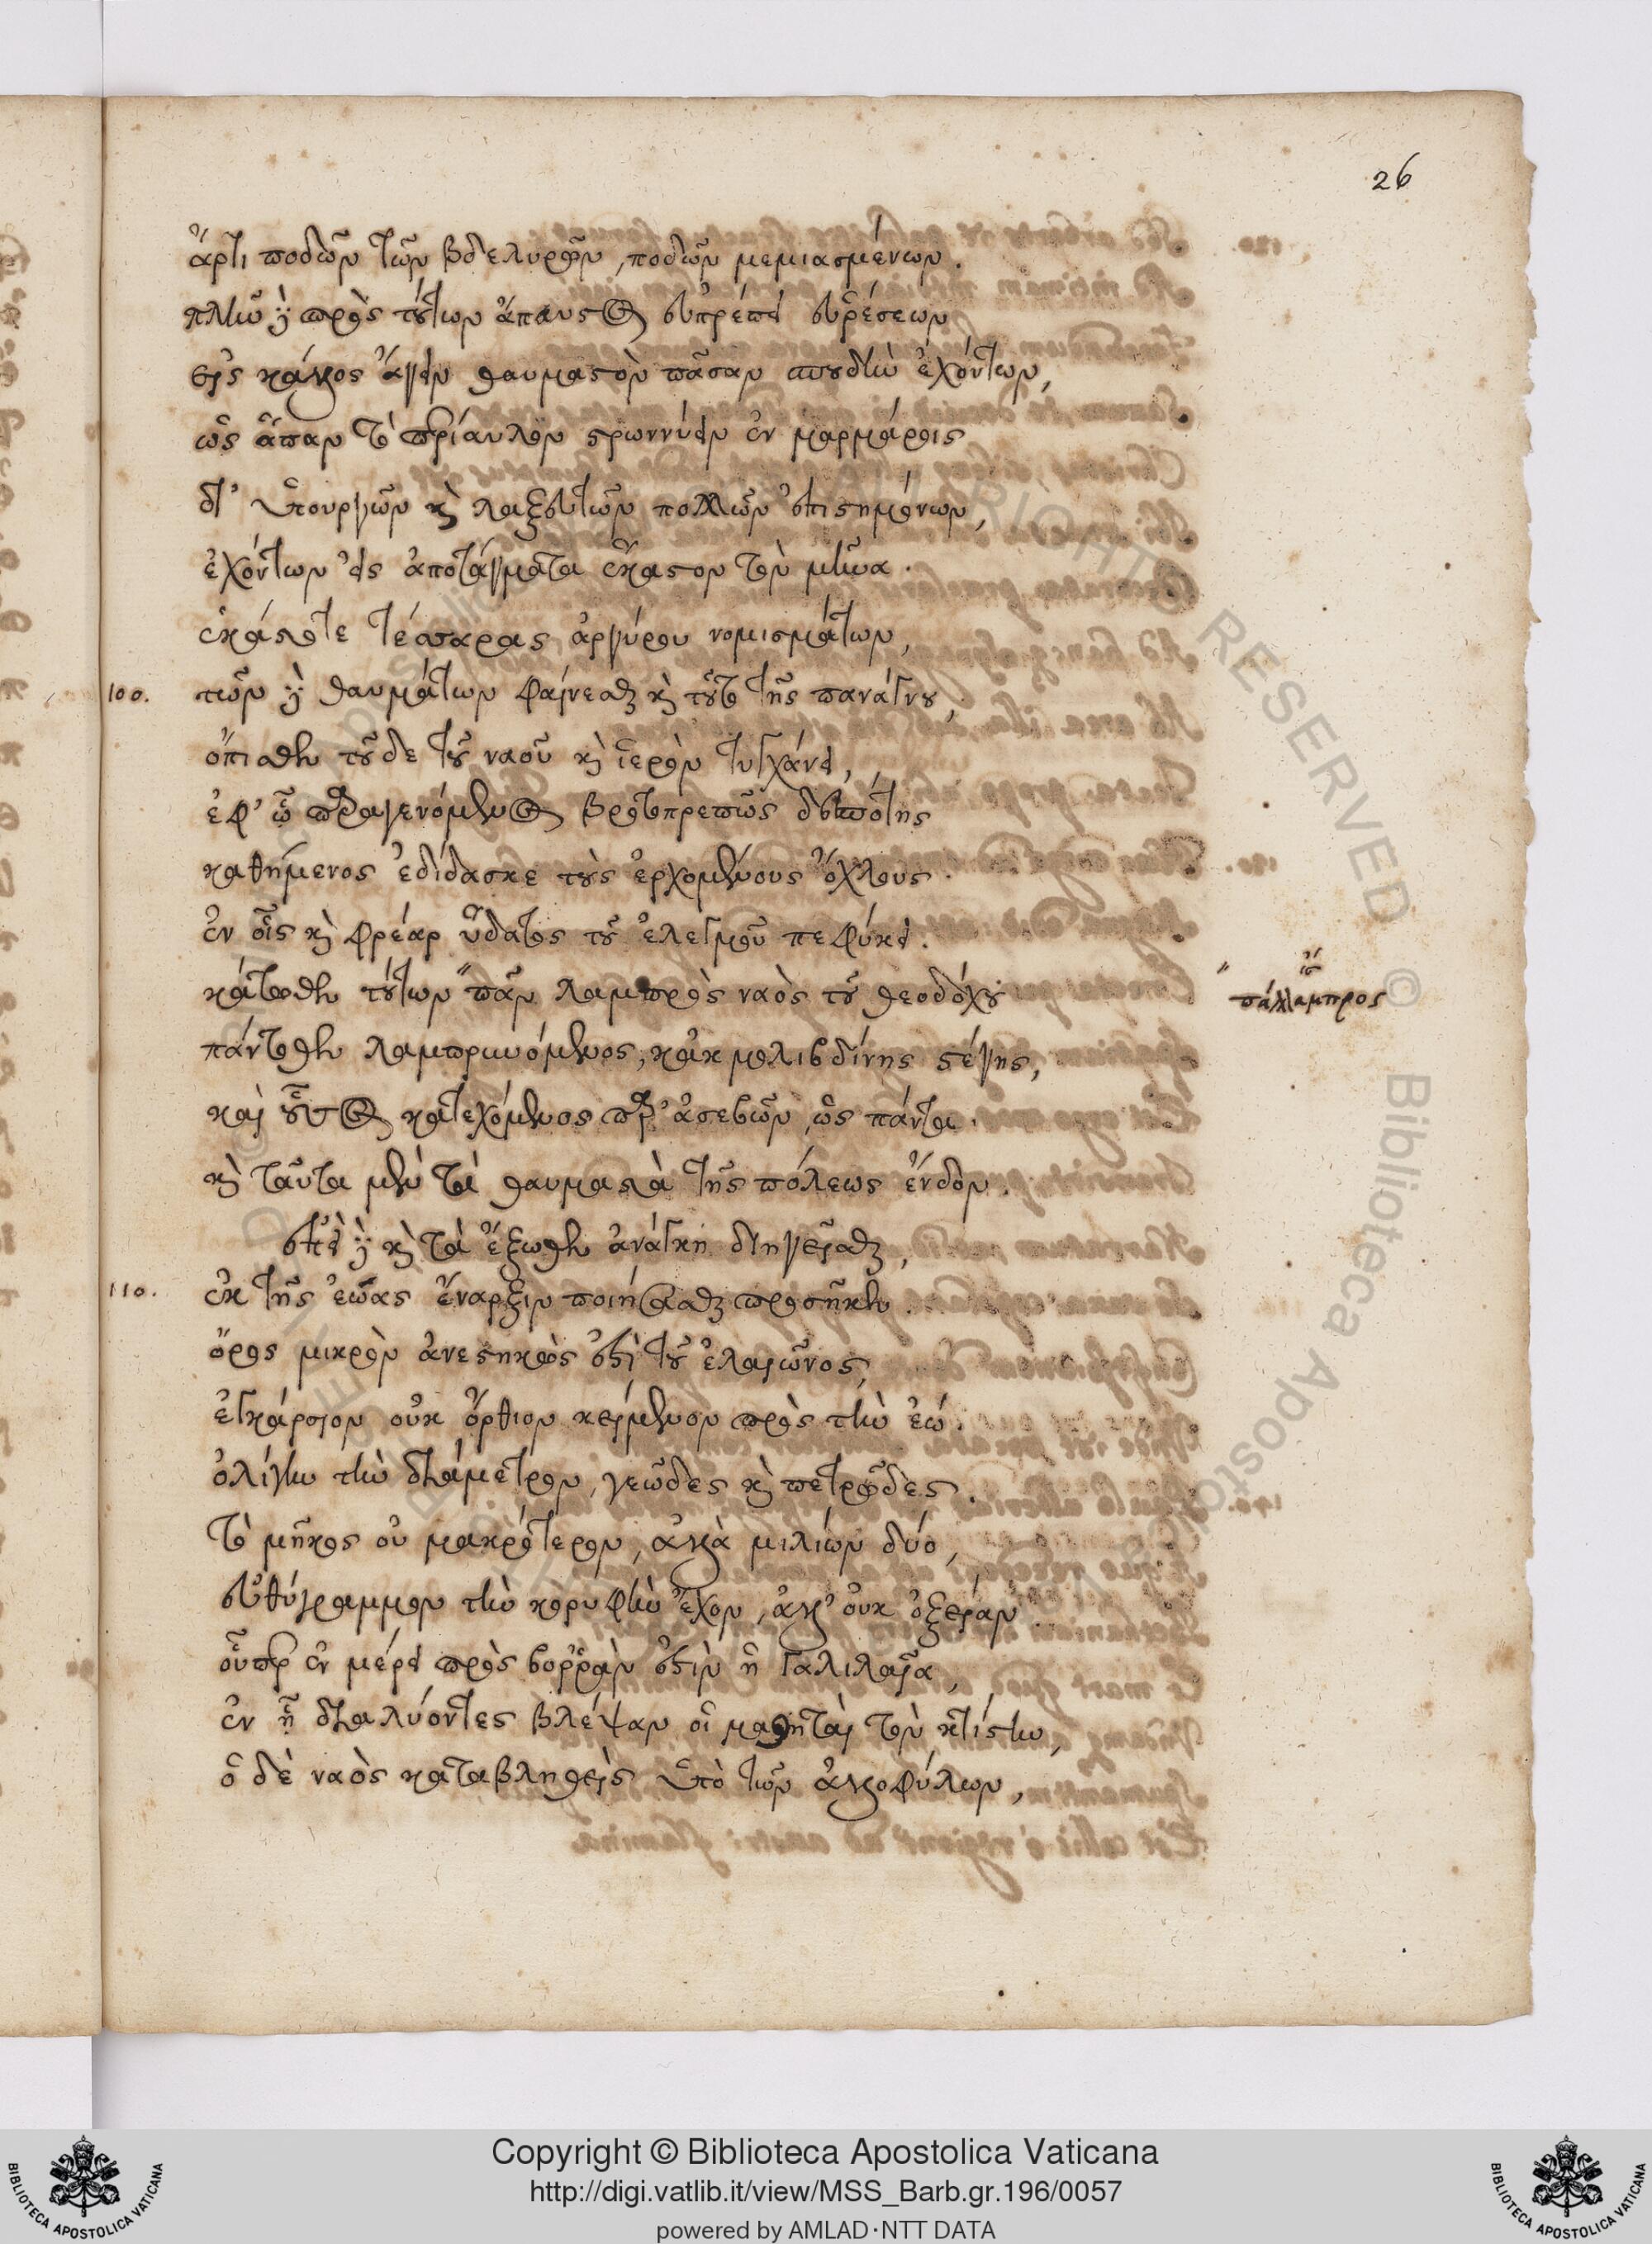 26
ἄρτι ποδῶν τῶν βδελυρῶν, ποδῶν μεμιασμένων.
πλὴν γὰρ πρὸς τούτων ἄπαυστος εὐπρέπει εὑρέσεων
εἰς κάλλος ἄγειν θαυμαστὸν πᾶσαν σπουδὴν ἐχόντων,
ὡς ἅπαν τὸ περίαυλον στρωννύειν ἐν μαρμάροις
δι' ὑπουργῶν καὶ λαξευτῶν πολλῶν ἐπιστημόνων,
ἐχόντων εἰς ἀποτάγματα ἕκαστον τὸν μῆνα.
ἑκάστοτε τέσσαρας ἀργύρου νομισμάτων,
100. τῶν γὰρ θαυμάτων φαίνεσθαι καὶ τοῦτο τῆς πανάγνου,
ὄπισθεν τοῦδε τοῦ ναοῦ καὶ ἱερὸν τυγχάνει,
ἐφ' ᾧ παραγενόμενος βροτοπρεπῶς δεσπότης
καθήμενος ἐδίδασκε τοὺς ἐρχομένους ὄχλους.
ἐν οἷς καὶ φρέαρ ὕδατος τοῦ ἐλεγμοῦ πεφύκει.
κάτωθεν τούτων " πᾶν λαμπρὸς ναὸς τοῦ θεοδόχου
" ἴσ πάλλαμπρος
πάντοθεν λαμπρυνόμενος, κἀκ μολιβδίνης στέγης,
καὶ οὗτος κατεχόμενος παρ' ἀσεβῶν, ὡς πάντα.
καὶ ταῦτα μὲν τὰ θαυμαστὰ τῆς πόλεως ἔνδον.
ἐπεὶ γὰρ καὶ τὰ ἔξωθεν ἀνάγκη διηγεῖσθαι,
110. ἐκ τῆς ἑῴας ἔναρξιν ποιήσασθαι προσῆκεν.
ὄρος μικρὸν ἀνεστηκὸς ἐστὶ τοῦ ἐλαιῶνος,
ἐγκάρσιον οὐκ ὄρθιον κείμενον πρὸς τὴν ἑώ.
ὀλίγην τὴν διάμετρον, γεῶδες καὶ πετρῶδες.
τὸ μῆκος οὐ μακρότερον, ἀλλὰ μιλίων δύο,
εὐθύγραμμον τὴν κορυφὴν ἔχον, ἀλλ' οὐκ ὀξεῖαν
οὗπερ ἐν μέρει πρὸς βορρᾶν ἐστὶν ἡ Γαλιλαία,
ἐν ᾗ διαλύοντες βλέψαν οἱ μαθηταὶ τὸν κτίστην,
ὁ δὲ ναὸς καταβληθεὶς ὑπὸ τῶν ἀλλοφύλων,
Copyright © Biblioteca Apostolica Vaticana
http://digi.vatlib.it/view/MSS_Barb.gr.196/0057
powered by AMLAD·NTT DATA